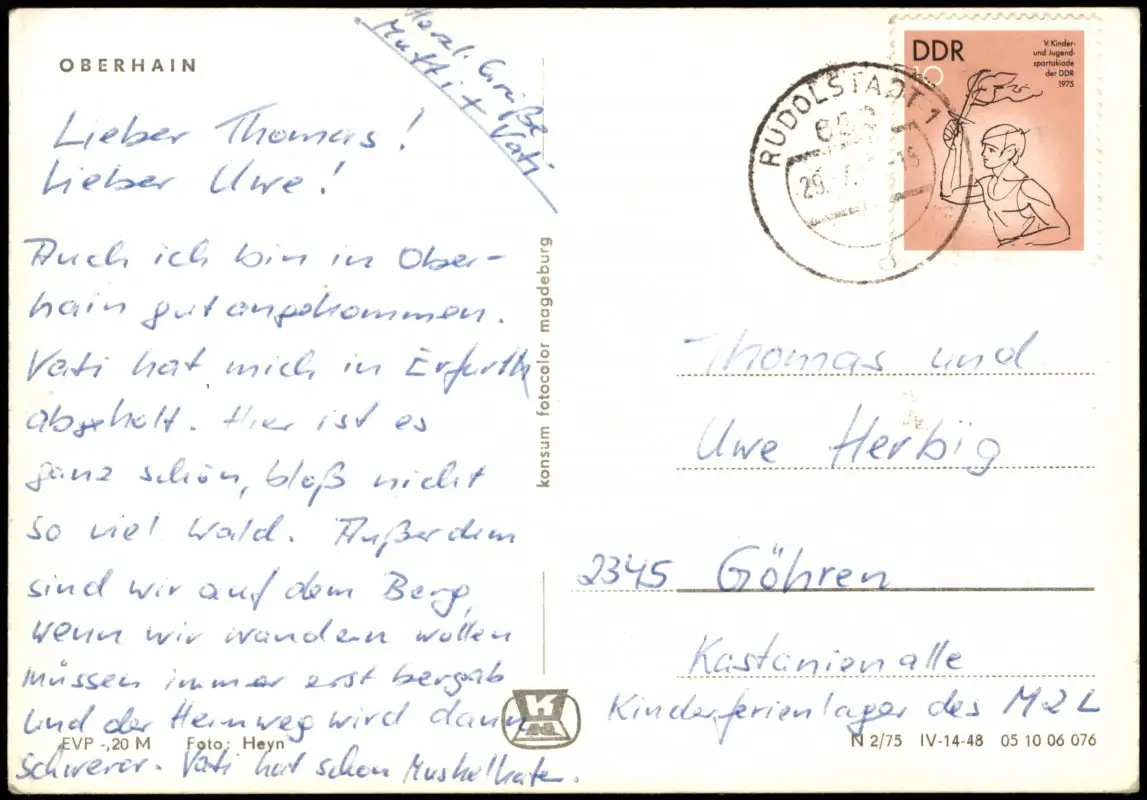 OBERHAIN
Lieber Thomas!
Lieber Uwe!
Auch ich bin in Ober-
hain gut angekommen.
Vati hat mich in Erfurth
abgeholt. Hier ist es
ganz schön, bloß nicht
so viel Wald. Außerdem
sind wir auf dem Berg,
wenn wir wandern wollen
müssen immer erst bergab
und der Heimweg wird dann
schwerer. Vati hat schon Muskelkater.
Herzl. Grüße
Mutti + Vati
EVP -,20 M Foto: Heyn
konsum fotocolor magdeburg
DDR
10
V. Kinder-
und Jugend-
spartakiade
der DDR
1975
RUDOLSTADT 1
Thomas und
Uwe Herbig
2345 Göhren
Kastanienalle
Kinderferienlager des M2L
N 2/75 IV-14-48 05 10 06 076